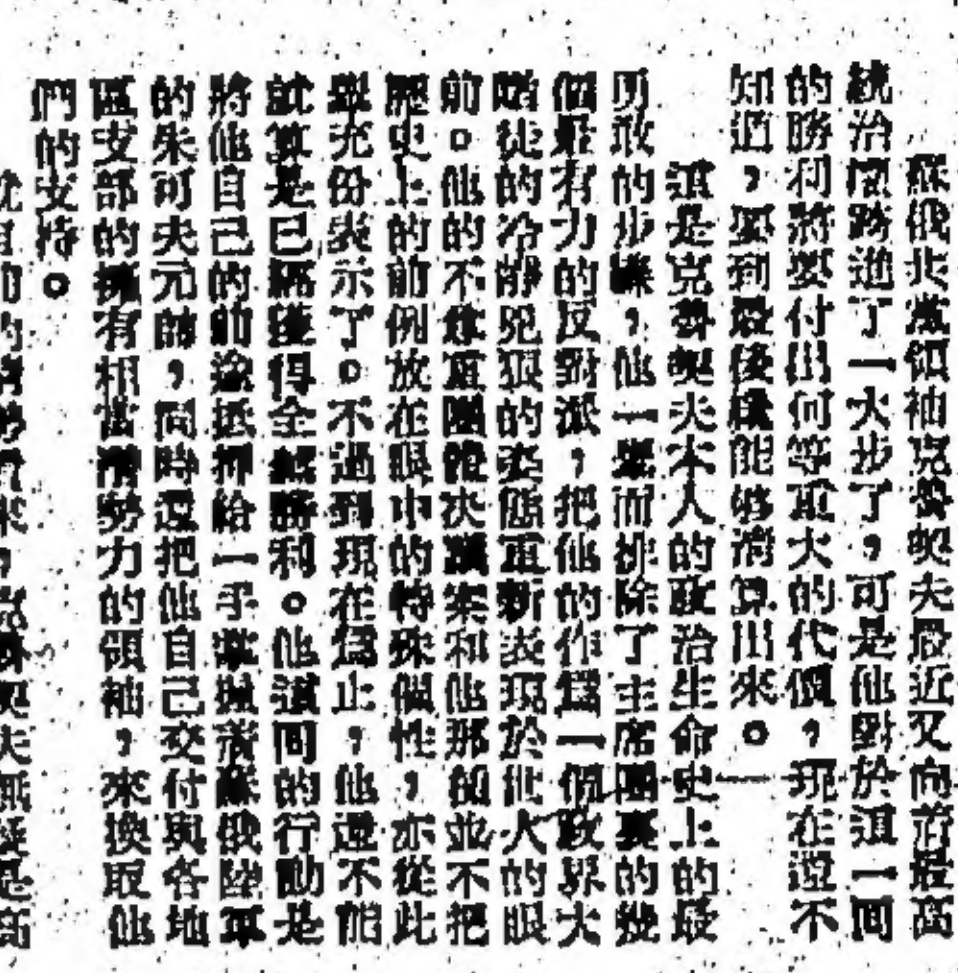 蘇俄共黨領袖克魯契夫最近又向着最高
統治階跨進了一大步了,可是他對於這一間
的勝利將要付出何等重大的代價,現在還不
知道,要到最後纔能够清算出來。
這是克魯契夫本人的政治生命史上的最
勇敢的步驟,他一舉而排除了主席團裏的幾
個最有力的反對派,把他的作爲一個政界大
賭徒的冷靜兇狠的姿態重新表現於世人的眼
前。他的不尊重團體決議案和他那的並不把
歷史上的前例放在眼中的特殊個性,亦從此
畢充份表示了。不過到現在爲止,他還不能
就算是已經獲得全部勝利。他這間的行動是
將他自己的前途抵押給一手掌握着蘇俄陸軍
的朱可夫元帥,同時還把他自己交付與各地
區支部的擁有相當潛勢力的領袖,來換取他
們的支持。